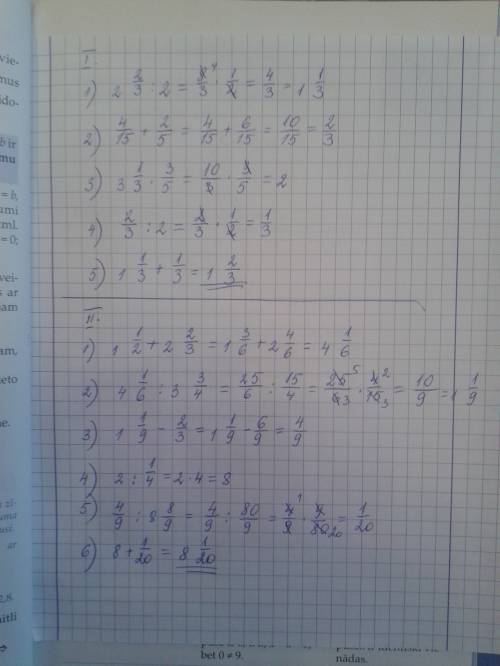 vie-
mus
ido-
b ir
mu
= b,
umi
ml.
= 0;
vei-
s ar
nam
am,
neto
ne.
ar
2.8.
aitli
I.
1) 2 2/3 : 2 = 8/3 · 1/2 = 4/3 = 1 1/3
2) 4/15 + 2/5 = 4/15 + 6/15 = 10/15 = 2/3
3) 3 1/3 · 3/5 = 10/3 · 3/5 = 2
4) 2/3 : 2 = 2/3 · 1/2 = 1/3
5) 1 1/3 + 1/3 = 1 2/3
II.
1) 1 1/2 + 2 2/3 = 1 3/6 + 2 4/6 = 4 1/6
2) 4 1/6 : 3 3/4 = 25/6 : 15/4 = 25 5/6 3 · 4 2/15 3 = 10/9 = 1 1/9
3) 1 1/9 - 2/3 = 1 1/9 - 6/9 = 4/9
4) 2 : 1/4 = 2 · 4 = 8
5) 4/9 : 8 8/9 = 4/9 : 80/9 = 4 1/9 · 9/80 20 = 1/20
6) 8 + 1/20 = 8 1/20
bet 0 ≠ 9.
nādas.